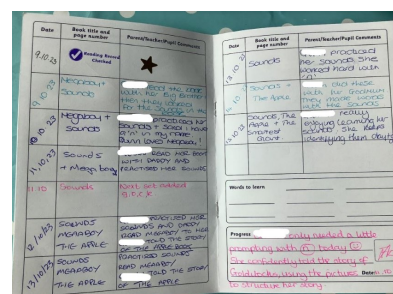 Date
Book title and page number
Parent/Teacher/Pupil Comments
9.10.23
Reading Record Checked
9.10.23
Megaboy + Sounds
read the book
with her Big Brother
then they looked
for the sounds in my
Megaboy + Sounds
practiced her
sounds + said I have
a 'n' in my name.
11.10.23
Sounds + Megaboy
READ HER BOOK
WITH DADDY AND
PRACTISED HER SOUNDS
11.10
Sounds
Next set added
g.o.c.k
12/10/23
SOUNDS
MEGABOY
THE APPLE
PRACTISED HER
SOUNDS AND DADDY
READ MEGABOY TO
HER
TOLD THE STORY
OF THE APPLE BOOK
13/10/23
SOUNDS
MEGABOY
THE APPLE
PRACTISED SOUNDS
READ MEGABOY
TOLD THE STORY
OF THE APPLE
Date
Book title and page number
Parent/Teacher/Pupil Comments
Sounds
practiced
her sounds. She
worked hard with
Sounds + The Apple
did these
with her Grandmum
they made words
with the sounds
Sounds, The Apple + The Smartest Giant.
really
enjoying learning her
sounds. She keeps
identifying them
Words to learn
Progress
only needed a little
prompting with
today
She confidently told the story of
Goldilocks, using the pictures
to structure her story.
Date